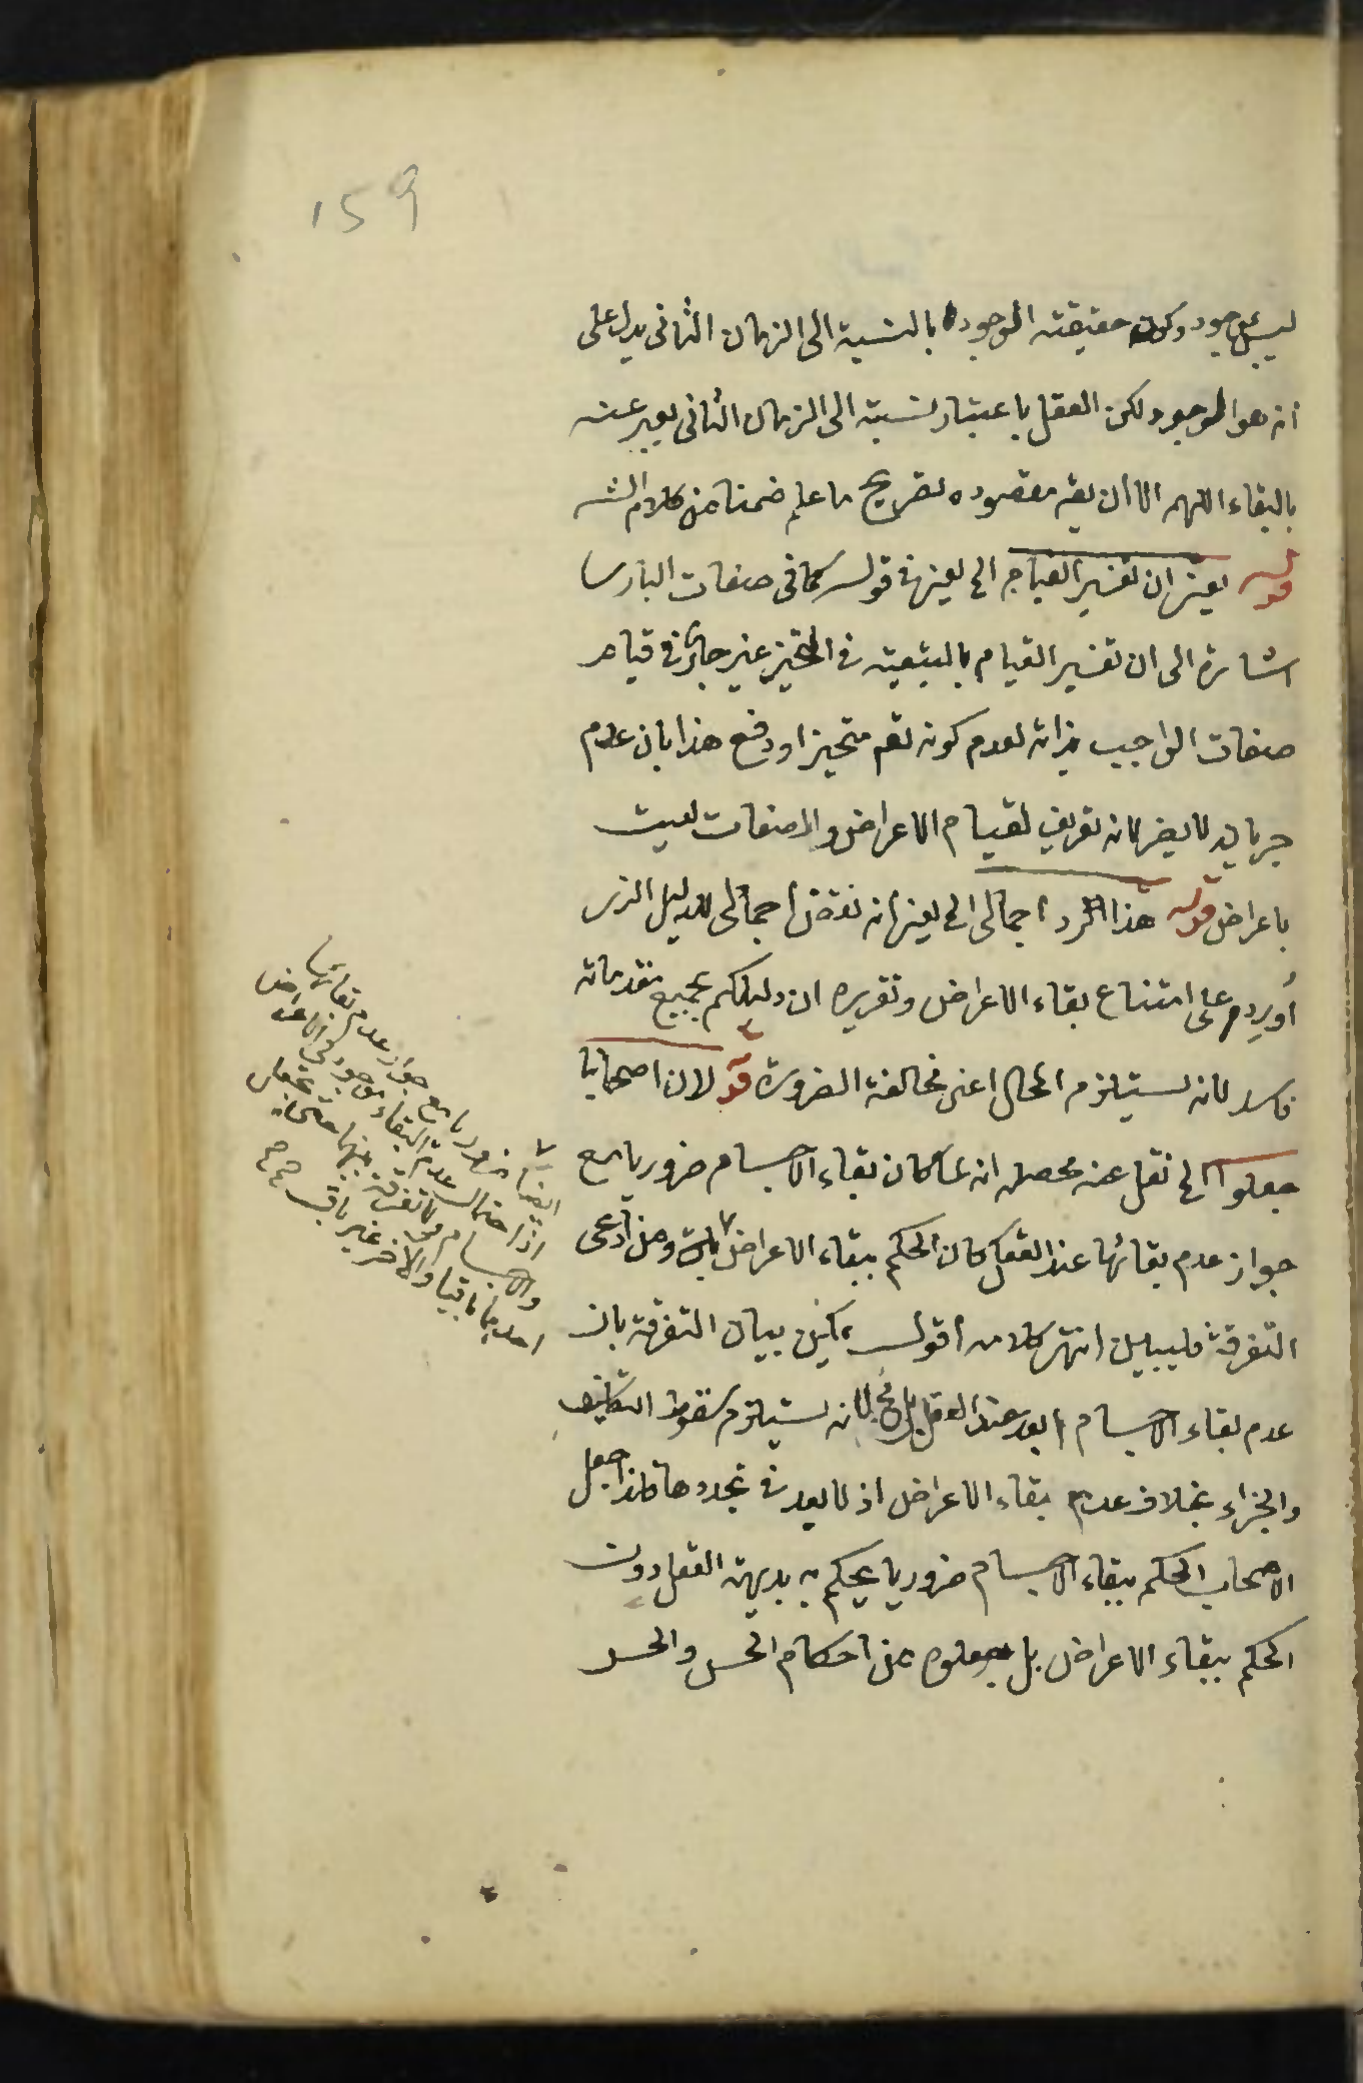 159
ليس بموجود وكون حقيقته الموجود بالنسبة الى الزمان الثانى يدل على
انه هو الموجود لكن العقل باعتبار نسبته الى الزمان الثانى يعبر عنه
بالبقاء اللهم الا أن يقه مقصوده تصريح ما علم ضمنا من كلام الشه
قوله يعنى ان تفسير القيام الى يعنى فى قوله كما فى صفات البارى
اشارة الى ان تفسير القيام بالتبعية فى التحيز غير جار فى قيام
صفات الواجب بذاته لعدم كونه تعه متحيزا ودفع هذا بان عدم
جريانه لا يضر لانه تعريف لقيام الاعراض والصفات ليست
باعراض قوله هذا الرد اجمالى الى يعنى انه نقض اجمالى للدليل الذى
أورد على امتناع بقاء الاعراض وتقريره ان دليلكم بجميع مقدماته
فاسد لانه يستلزم المحال اعنى مخالفة الضرورة قو لان اصحابنا
جعلوا الى نقل عنه محصله انه لما كان بقاء الاجسام ضروريا مع
جواز عدم بقائها عند العقل كان الحكم ببقاء الاعراض ومن ادعى
التفرقة فليبين انتهى كلامه اقول يمكن بيان التفرقة بان
عدم بقاء الاجسام ابعد عند العقل لانه يستلزم سقوط التكليف
والجزاء بخلاف عدم بقاء الاعراض اذ لا بعد فى تجددها فلذا جعل
الاصحاب الحكم ببقاء الاجسام ضروريا يحكم به بديهة العقل دون
الحكم ببقاء الاعراض بل جعلوه من احكام الحس والحس
ايضا ضروريا مع جواز عدم بقائها
اذ احتمال عدم البقاء موجود فى الاعراض
والاجسام ولا تفرقة بينهما حتى يجعل
احدهما باقيا والاخر غير باق